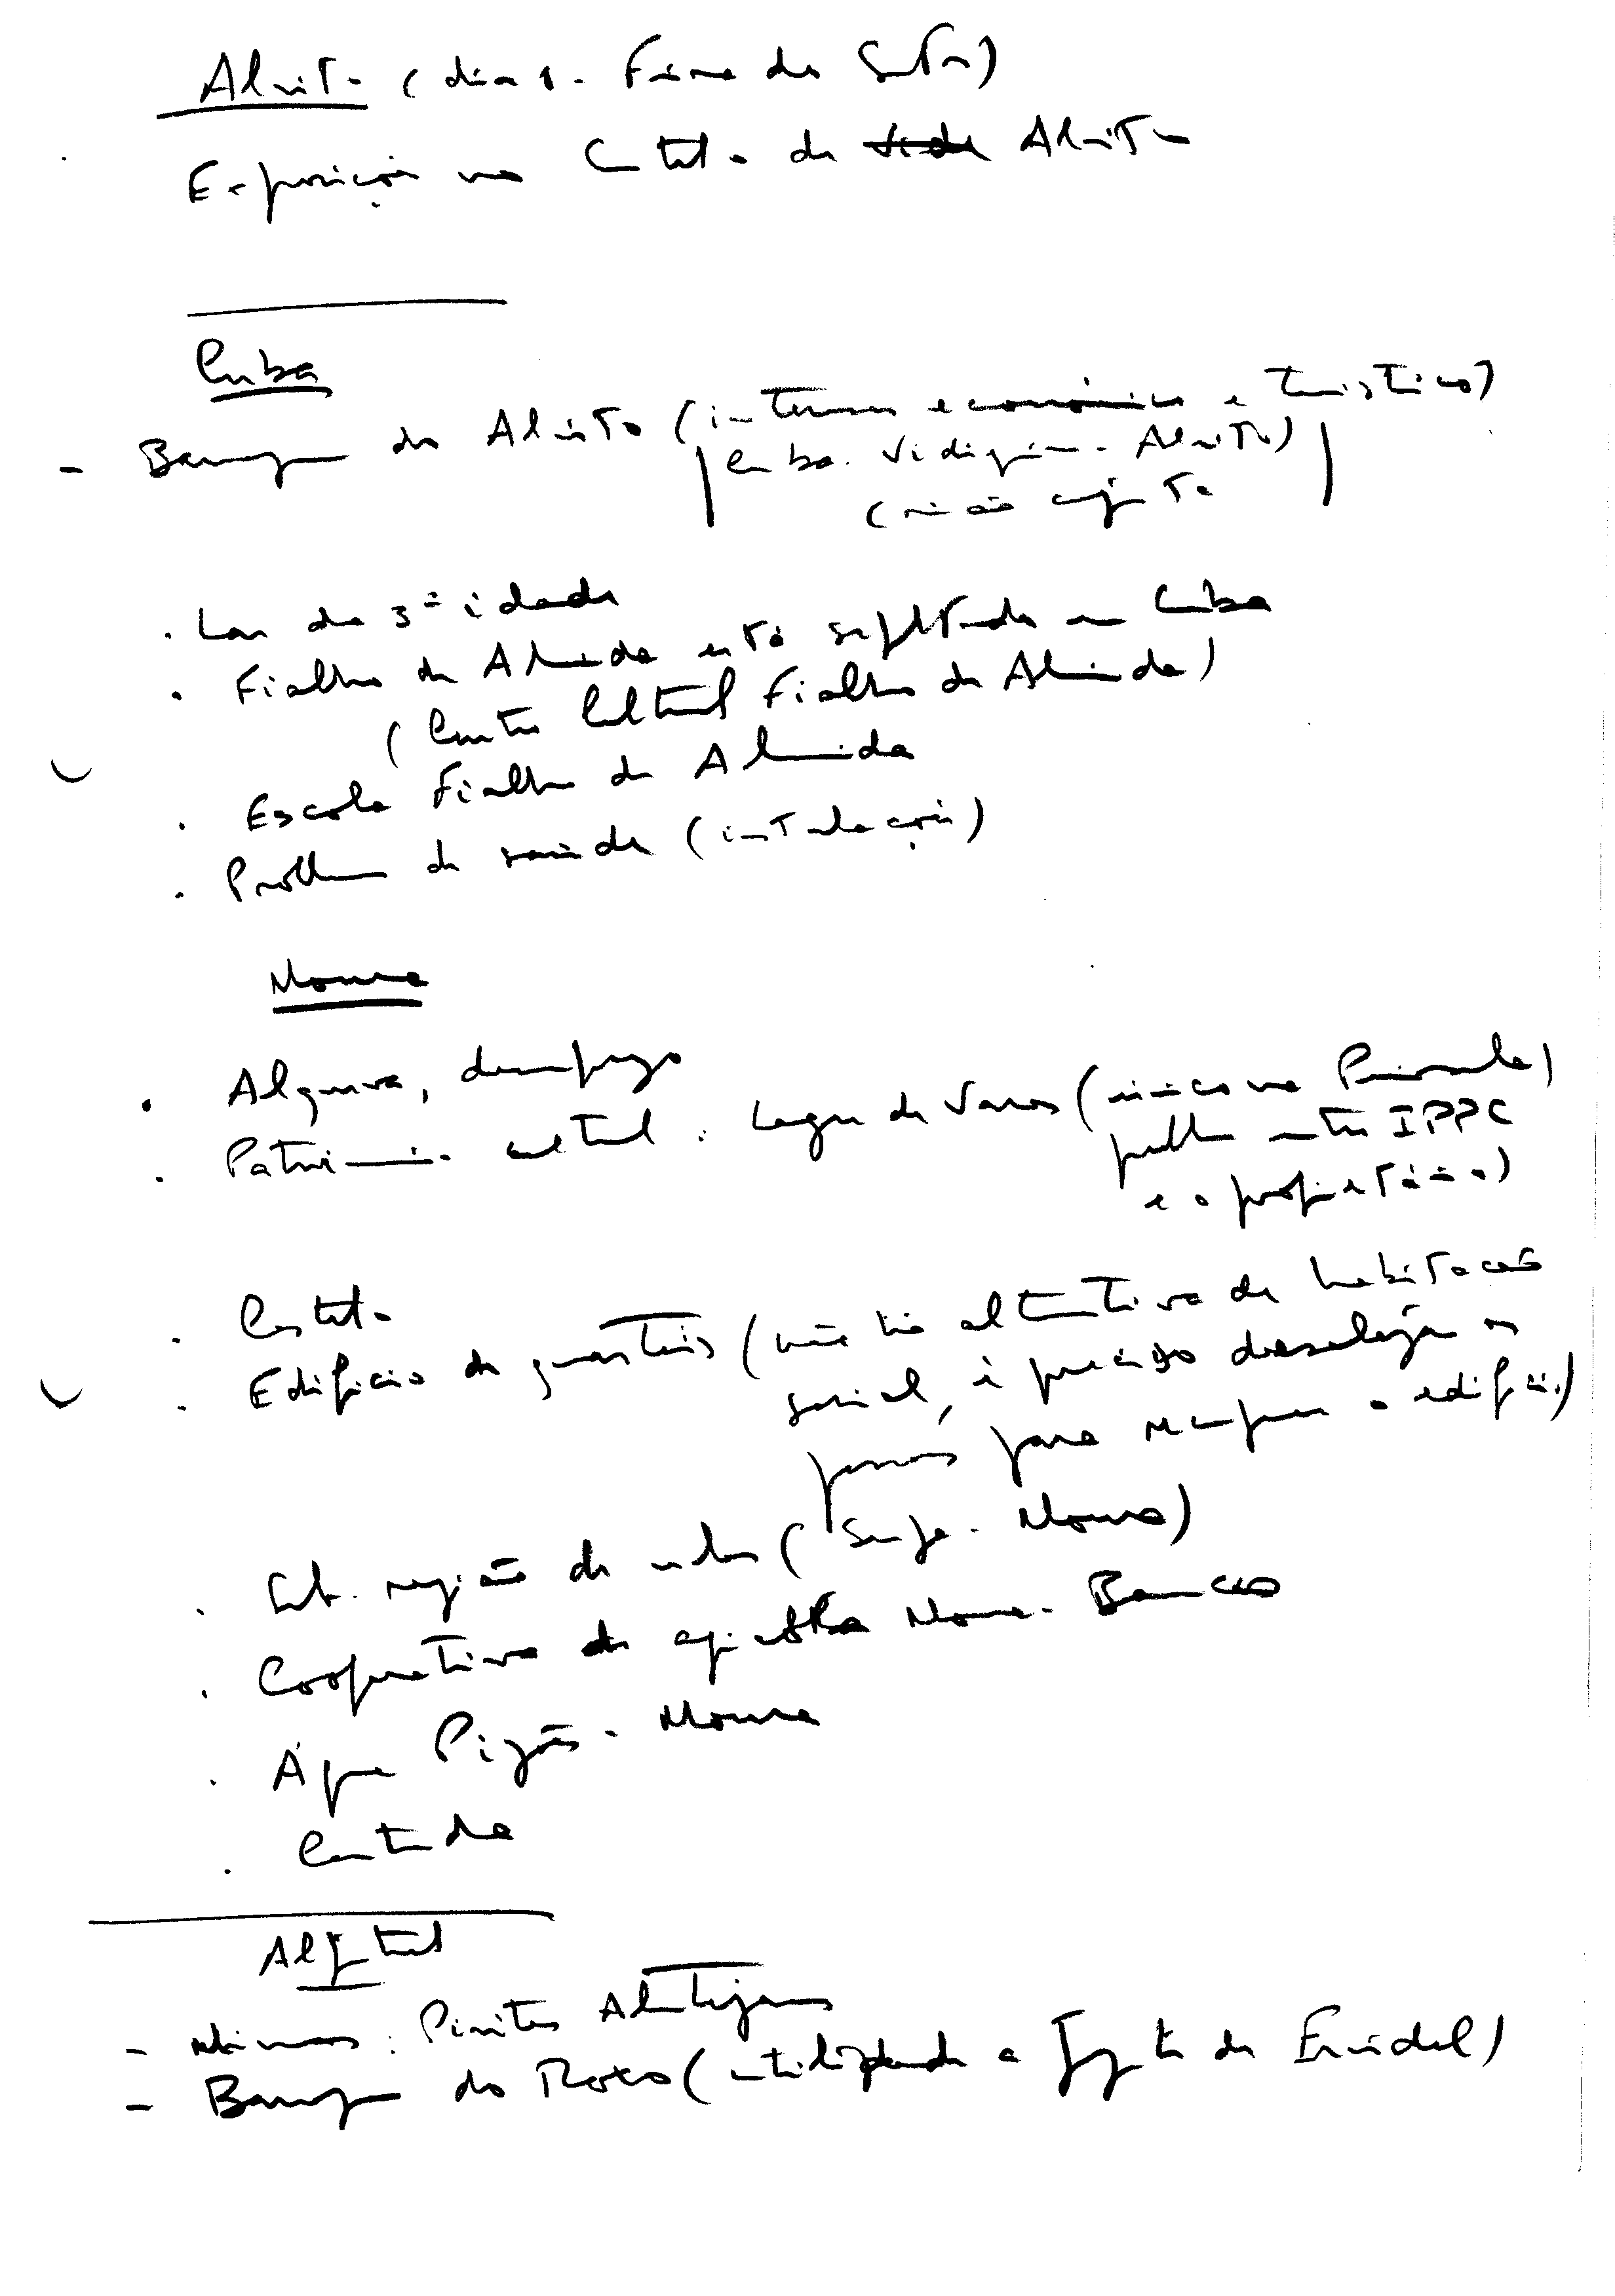 Alvito (dia 1 - Feira dos Santos)
Exposição no Castelo de Alvito
Cuba
- Barragem do Alvito (interesse económico e turístico)
Cuba. Vidigueira - Alvito)
(reunião conjunta
. Lar da 3ª idade
. Fialho de Almeida está sepultado em Cuba
(Centro Cultural Fialho de Almeida)
. Escola Fialho de Almeida
. Problema de saúde (instalações)
Moura
. Alqueva, desemprego
. Património cultural. Lagar de Varas (único na Península)
problema entre IPPC
e o proprietário)
. Castelo
. Edifício dos quartéis (não há alternativa de habitação
social, é preciso desalojar as
pessoas para recuperar o edifício)
. Sub-região de vinhos (Serpa - Moura)
. Cooperativa agrícola Moura - Barrancos
. Água Pizões - Moura
. Contenda
Aljustrel
- Minas: Pirites Alentejanas
- Barragem do Roxo ( a Fonte de Ervidel)